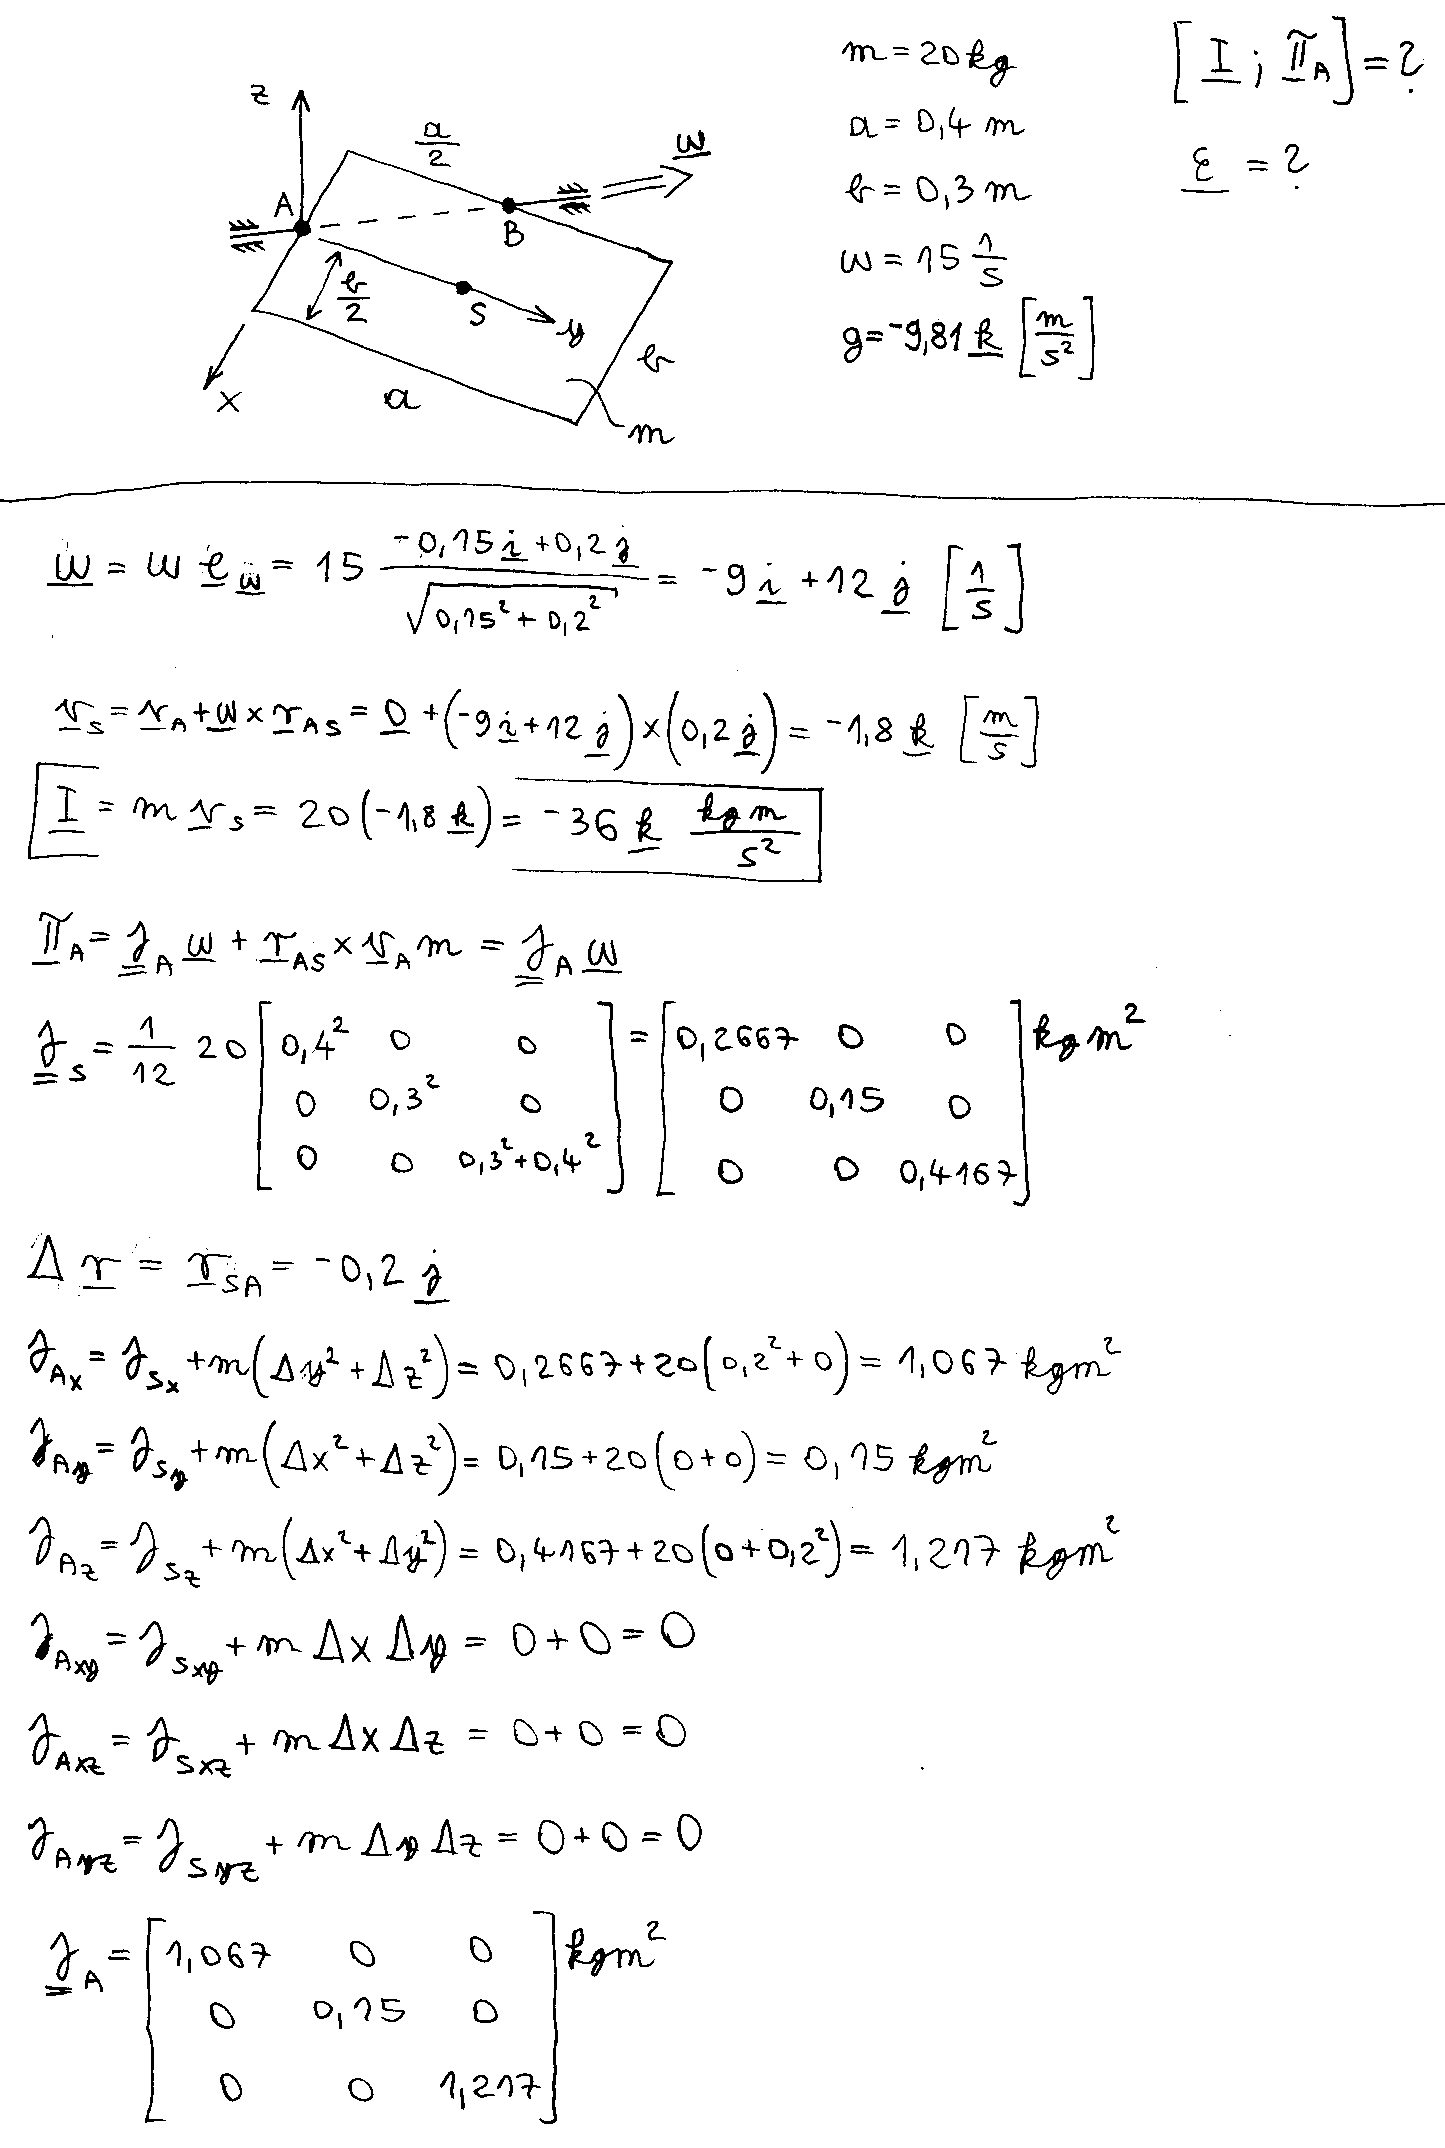 m = 20 kg
a = 0,4 m
b = 0,3 m
ω = 15 1/s
g = -9,81 k [m/s²]
[I ; π_A] = ?
ε = ?
z
a/2
ω
A
B
b/2
S
y
x
a
b
m
ω = ω e_ω = 15 (-0,15 i + 0,2 j)/√(0,15² + 0,2²) = -9 i + 12 j [1/s]
v_S = v_A + ω × r_AS = 0 + (-9 i + 12 j) × (0,2 j) = -1,8 k [m/s]
I = m v_S = 20 (-1,8 k) = -36 k kgm/s²
π_A = J_A ω + r_AS × v_A m = J_A ω
J_S = 1/12 20 [0,4² 0 0; 0 0,3² 0; 0 0 0,3²+0,4²] = [0,2667 0 0; 0 0,15 0; 0 0 0,4167] kgm²
Δr = r_SA = -0,2 j
J_Ax = J_Sx + m(Δy² + Δz²) = 0,2667 + 20(0,2² + 0) = 1,067 kgm²
J_Ay = J_Sy + m(Δx² + Δz²) = 0,15 + 20(0+0) = 0,15 kgm²
J_Az = J_Sz + m(Δx² + Δy²) = 0,4167 + 20(0+0,2²) = 1,217 kgm²
J_Axy = J_Sxy + m Δx Δy = 0 + 0 = 0
J_Axz = J_Sxz + m Δx Δz = 0 + 0 = 0
J_Ayz = J_Syz + m Δy Δz = 0 + 0 = 0
J_A = [1,067 0 0; 0 0,15 0; 0 0 1,217] kgm²